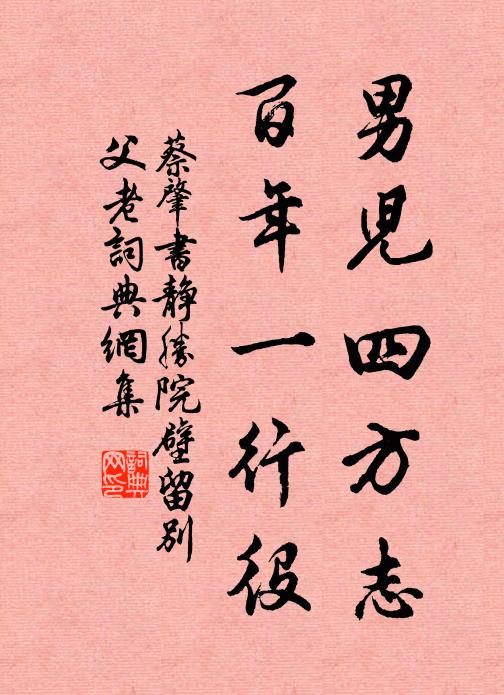 男児四方志
百年一行役
蔡肇書静勝院壁留別
父老詞典網集
詞典
网印